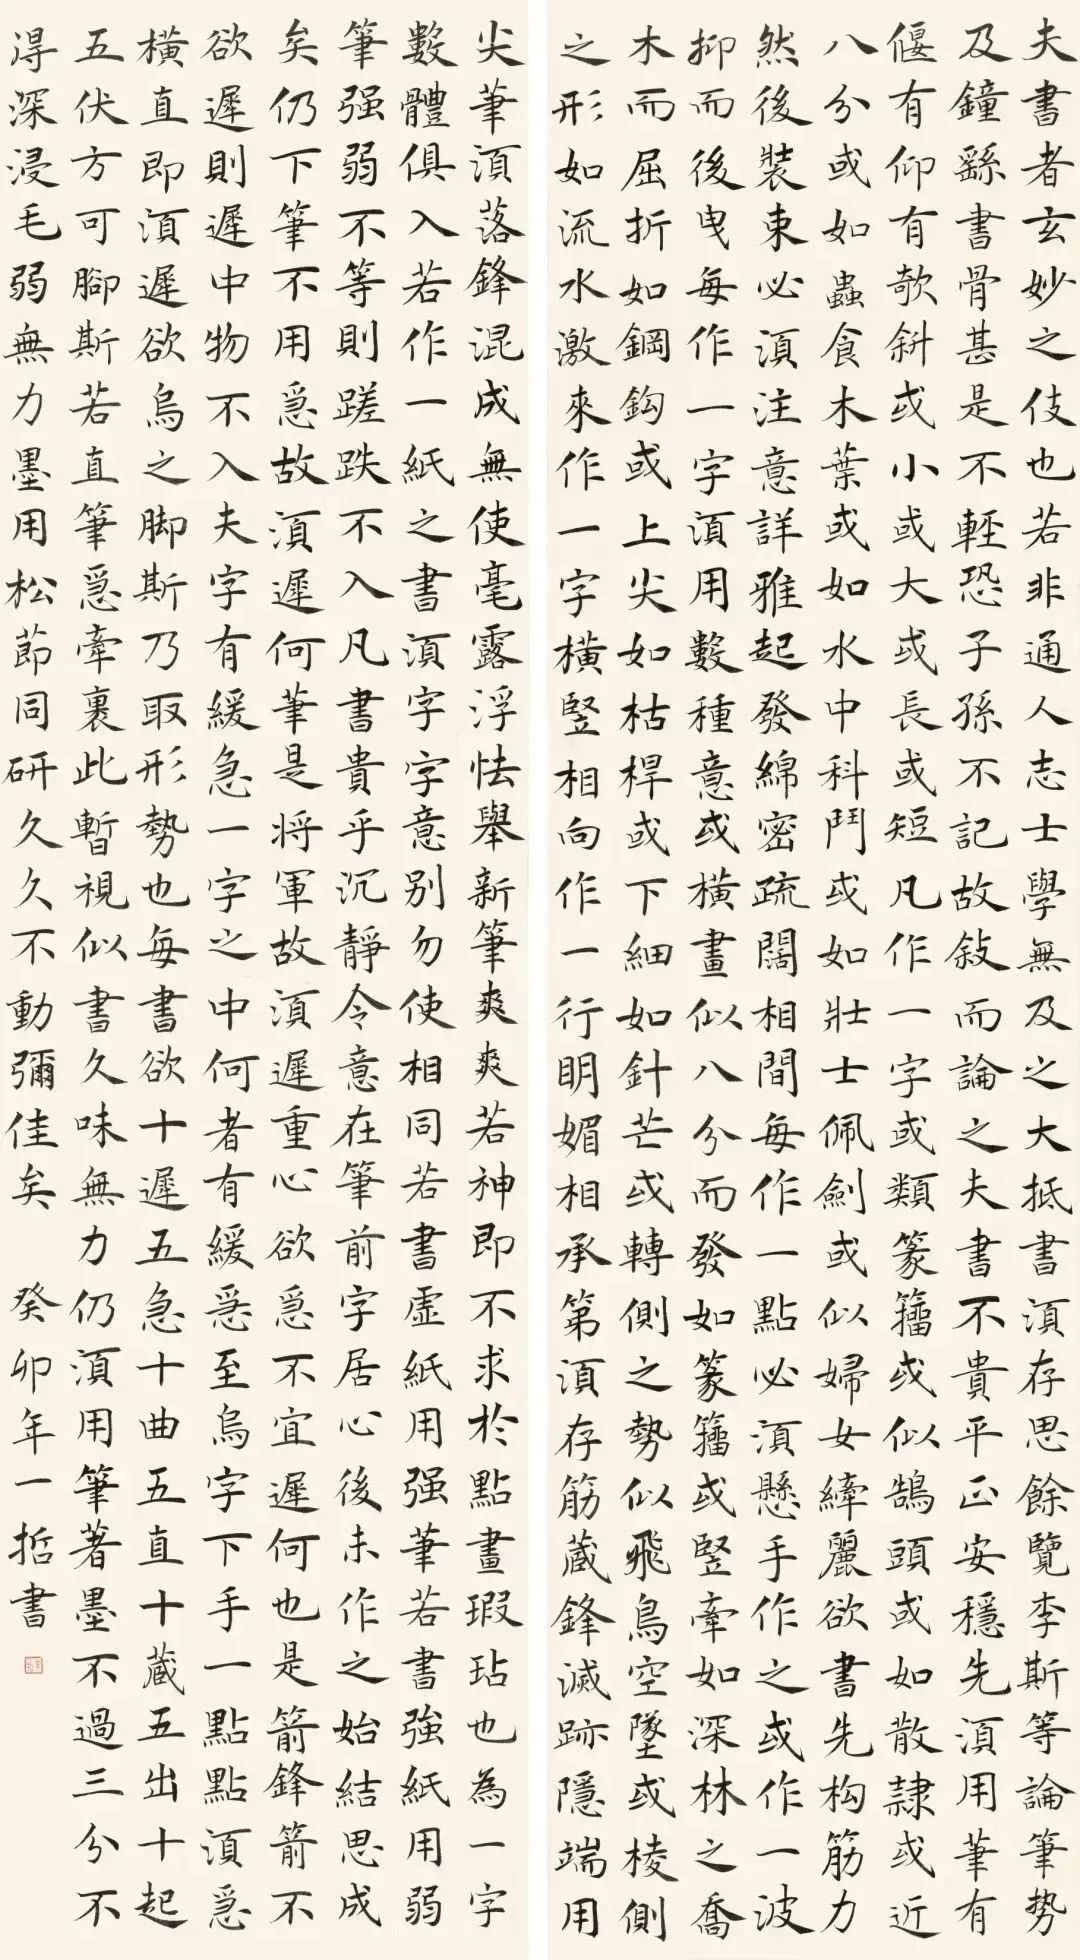 夫書者玄妙之伎也若非通人志士學無及之大抵書須存思餘覽李斯等論筆勢
及鐘繇書骨甚是不輕恐子孫不記故敍而論之夫書不貴平正安穩先須用筆有
偃有仰有欹斜或小或大或長或短凡作一字或類篆籀或似鵠頭或如散隷或近
八分或如蟲食木葉或如水中科鬥或如壯士佩劍或似婦女縴麗欲書先构筋力
然後裝束必須注意詳雅起發綿密疏闊相間每作一點必須懸手作之或作一波
抑而後曳每作一字須用數種意或橫畫似八分而發如篆籀或竪牽如深林之喬
木而屈折如鋼鈎或上尖如枯桿或下細如針芒或轉側之勢似飛鳥空墜或棱側
之形如流水激來作一字橫竪相向作一行明媚相承第須存筋蔵鋒滅跡隱端用
尖筆須落鋒混成無使毫露浮怯舉新筆爽爽若神即不求於點畫瑕玷也為一字
數體俱入若作一紙之書須字字意别勿使相同若書虛紙用强筆若書強紙用弱
筆强弱不等則蹉跌不入凡書貴乎沉靜令意在筆前字居心後未作之始結思成
矣仍下筆不用急故須遲何筆是将軍故須遲重心欲急不宜遲何也是箭鋒箭不
欲遲則遲中物不入夫字有緩急一字之中何者有緩急至烏字下手一點點須急
橫直即須遲欲烏之脚斯乃取形勢也每書欲十遲五急十曲五直十蔵五出十起
五伏方可腳斯若直筆急牽裏此暫視似書久味無力仍須用筆著墨不過三分不
淂深浸毛弱無力墨用松節同研久久不動彌佳矣 癸卯年一哲書